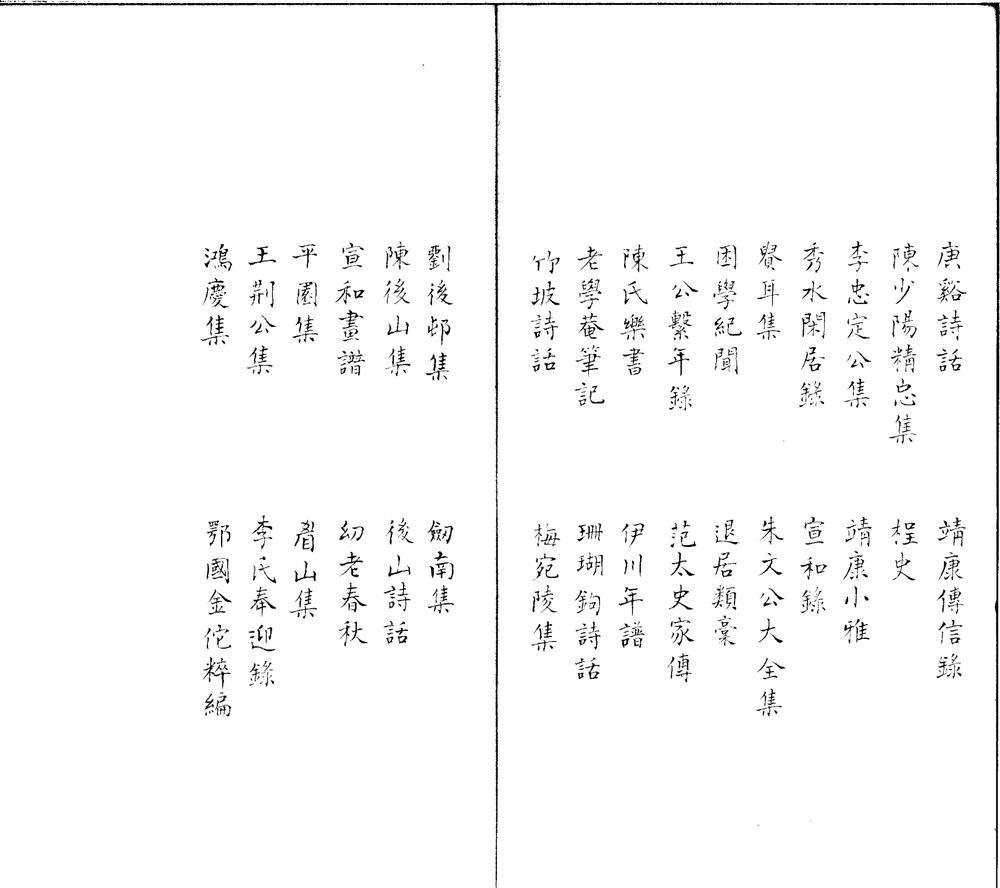 庚谿詩話
靖康傳信錄
陳少陽精忠集
桯史
李忠定公集
靖康小雅
秀水閑居錄
宣和錄
貴耳集
朱文公大全集
困學紀聞
退居類稾
王公繫年錄
范太史家傳
陳氏樂書
伊川年譜
老學菴筆記
珊瑚鉤詩話
竹坡詩話
梅宛陵集
劉後邨集
劒南集
陳後山集
後山詩話
宣和畫譜
幼老春秋
平園集
眉山集
王荆公集
李氏奉迎錄
鴻慶集
鄂國金佗粹編